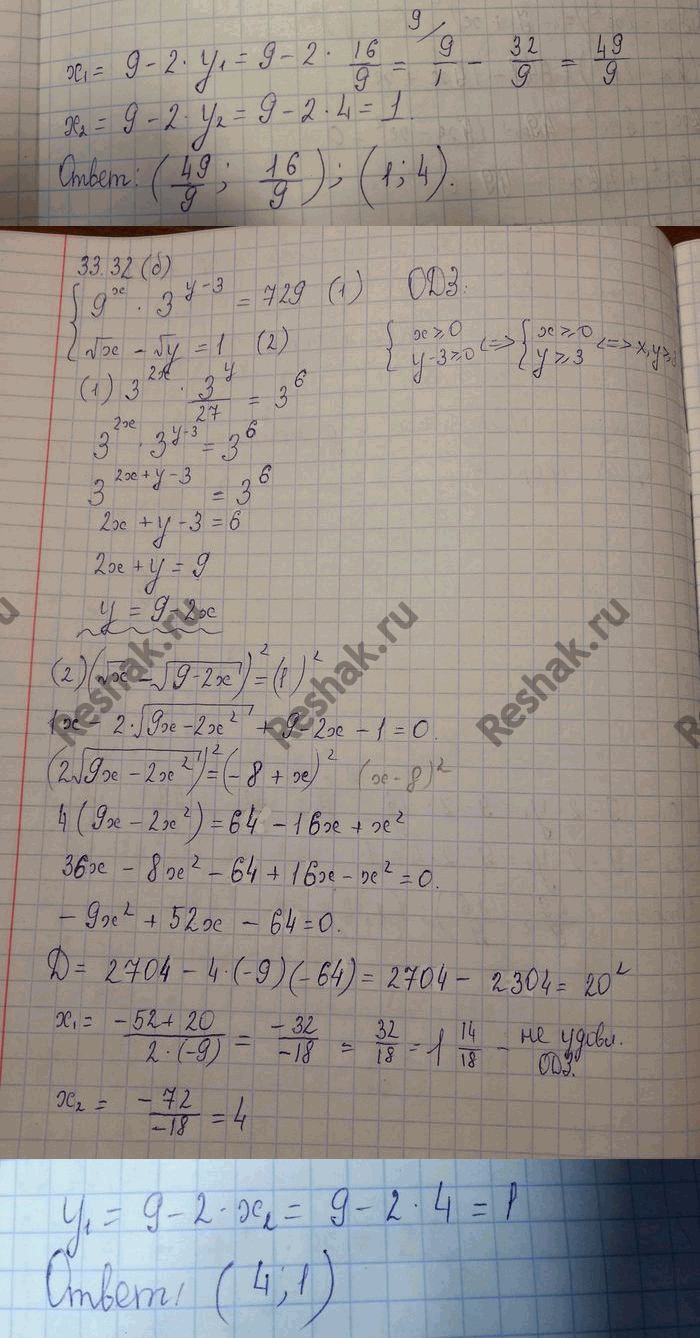 x₁ = 9 - 2 · y₁ = 9 - 2 · 16/9 = 9/1 - 32/9 = 49/9
9/
x₂ = 9 - 2 · y₂ = 9 - 2 · 4 = 1.
Ответ: (49/9; 16/9); (1; 4).
33.32 (б)
{ 9^x · 3^(y-3) = 729 (1) ОДЗ:
√x - √y = 1 (2) { x ≥ 0 y-3 ≥ 0 <=> { x ≥ 0 y ≥ 3 <=> x, y ≥
(1) 3^(2x) · 3^y/27 = 3^6
3^(2x) · 3^(y-3) = 3^6
3^(2x+y-3) = 3^6
2x + y - 3 = 6
2x + y = 9
y = 9 - 2x
(2) (√x - √(9-2x))² = (1)²
1x - 2·√(9x - 2x²) + 9 - 2x - 1 = 0.
(2√(9x - 2x²))² = (-8 + x)² (x - 8)²
4(9x - 2x²) = 64 - 16x + x²
36x - 8x² - 64 + 16x - x² = 0.
-9x² + 52x - 64 = 0.
D = 2704 - 4·(-9)(-64) = 2704 - 2304 = 20²
x₁ = (-52 + 20)/(2·(-9)) = -32/-18 = 32/18 = 1 14/18 - не удовл. ОДЗ.
x₂ = -72/-18 = 4
y₁ = 9 - 2 · x₂ = 9 - 2 · 4 = 1
Ответ: (4; 1)
Reshak.ru
Reshak.ru
Reshak.ru